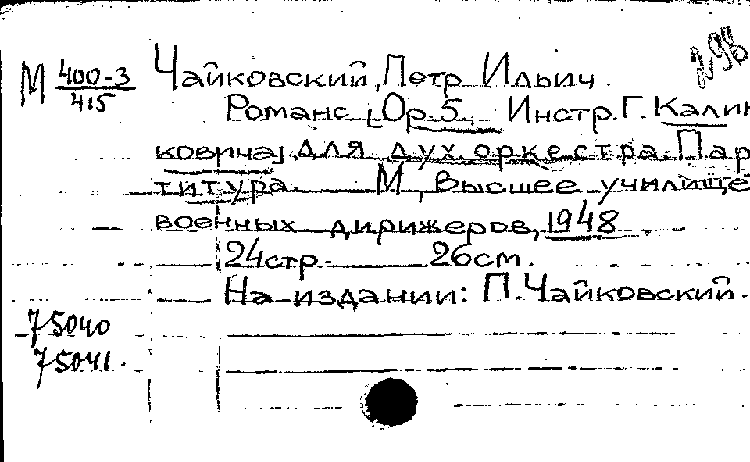 298
М 400-3/415
Чайковский, Петр Ильич.
Романс [Ор.5. Инстр. Г. Калин
ковича] для дух. оркестра. Пар
титура. М, Высшее училище
военных дирижеров, 1948.
24стр. 26см.
На издании: П. Чайковский.
75040
75041.